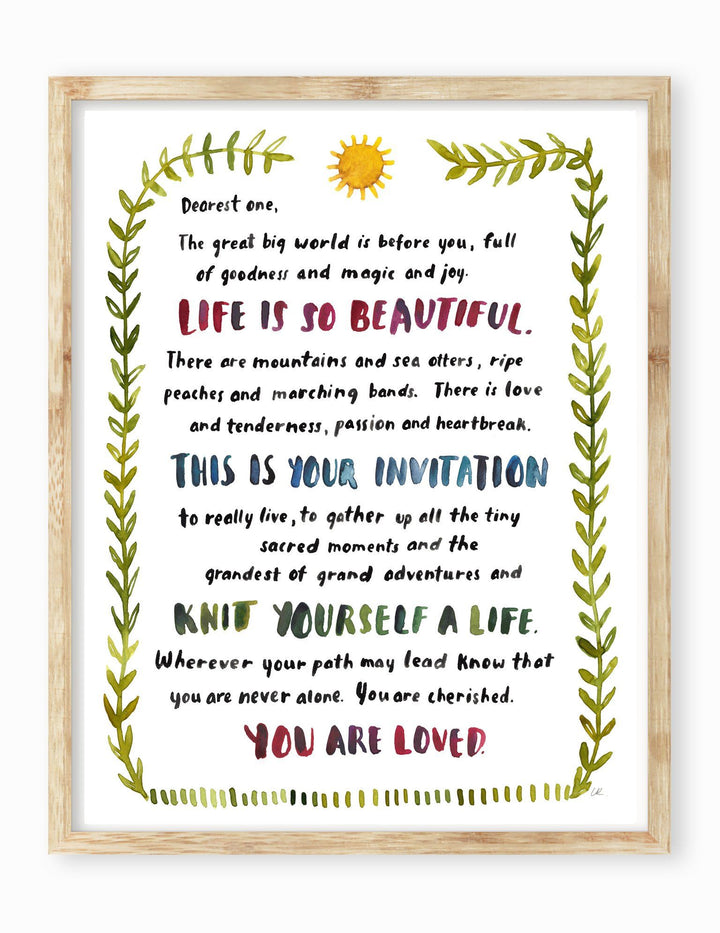 Dearest one,
The great big world is before you, full
of goodness and magic and joy.
LIFE IS SO BEAUTIFUL.
There are mountains and sea otters, ripe
peaches and marching bands. There is love
and tenderness, passion and heartbreak.
THIS IS YOUR INVITATION
to really live, to gather up all the tiny
sacred moments and the
grandest of grand adventures and
KNIT YOURSELF A LIFE.
Wherever your path may lead know that
you are never alone. You are cherished.
YOU ARE LOVED.
LR